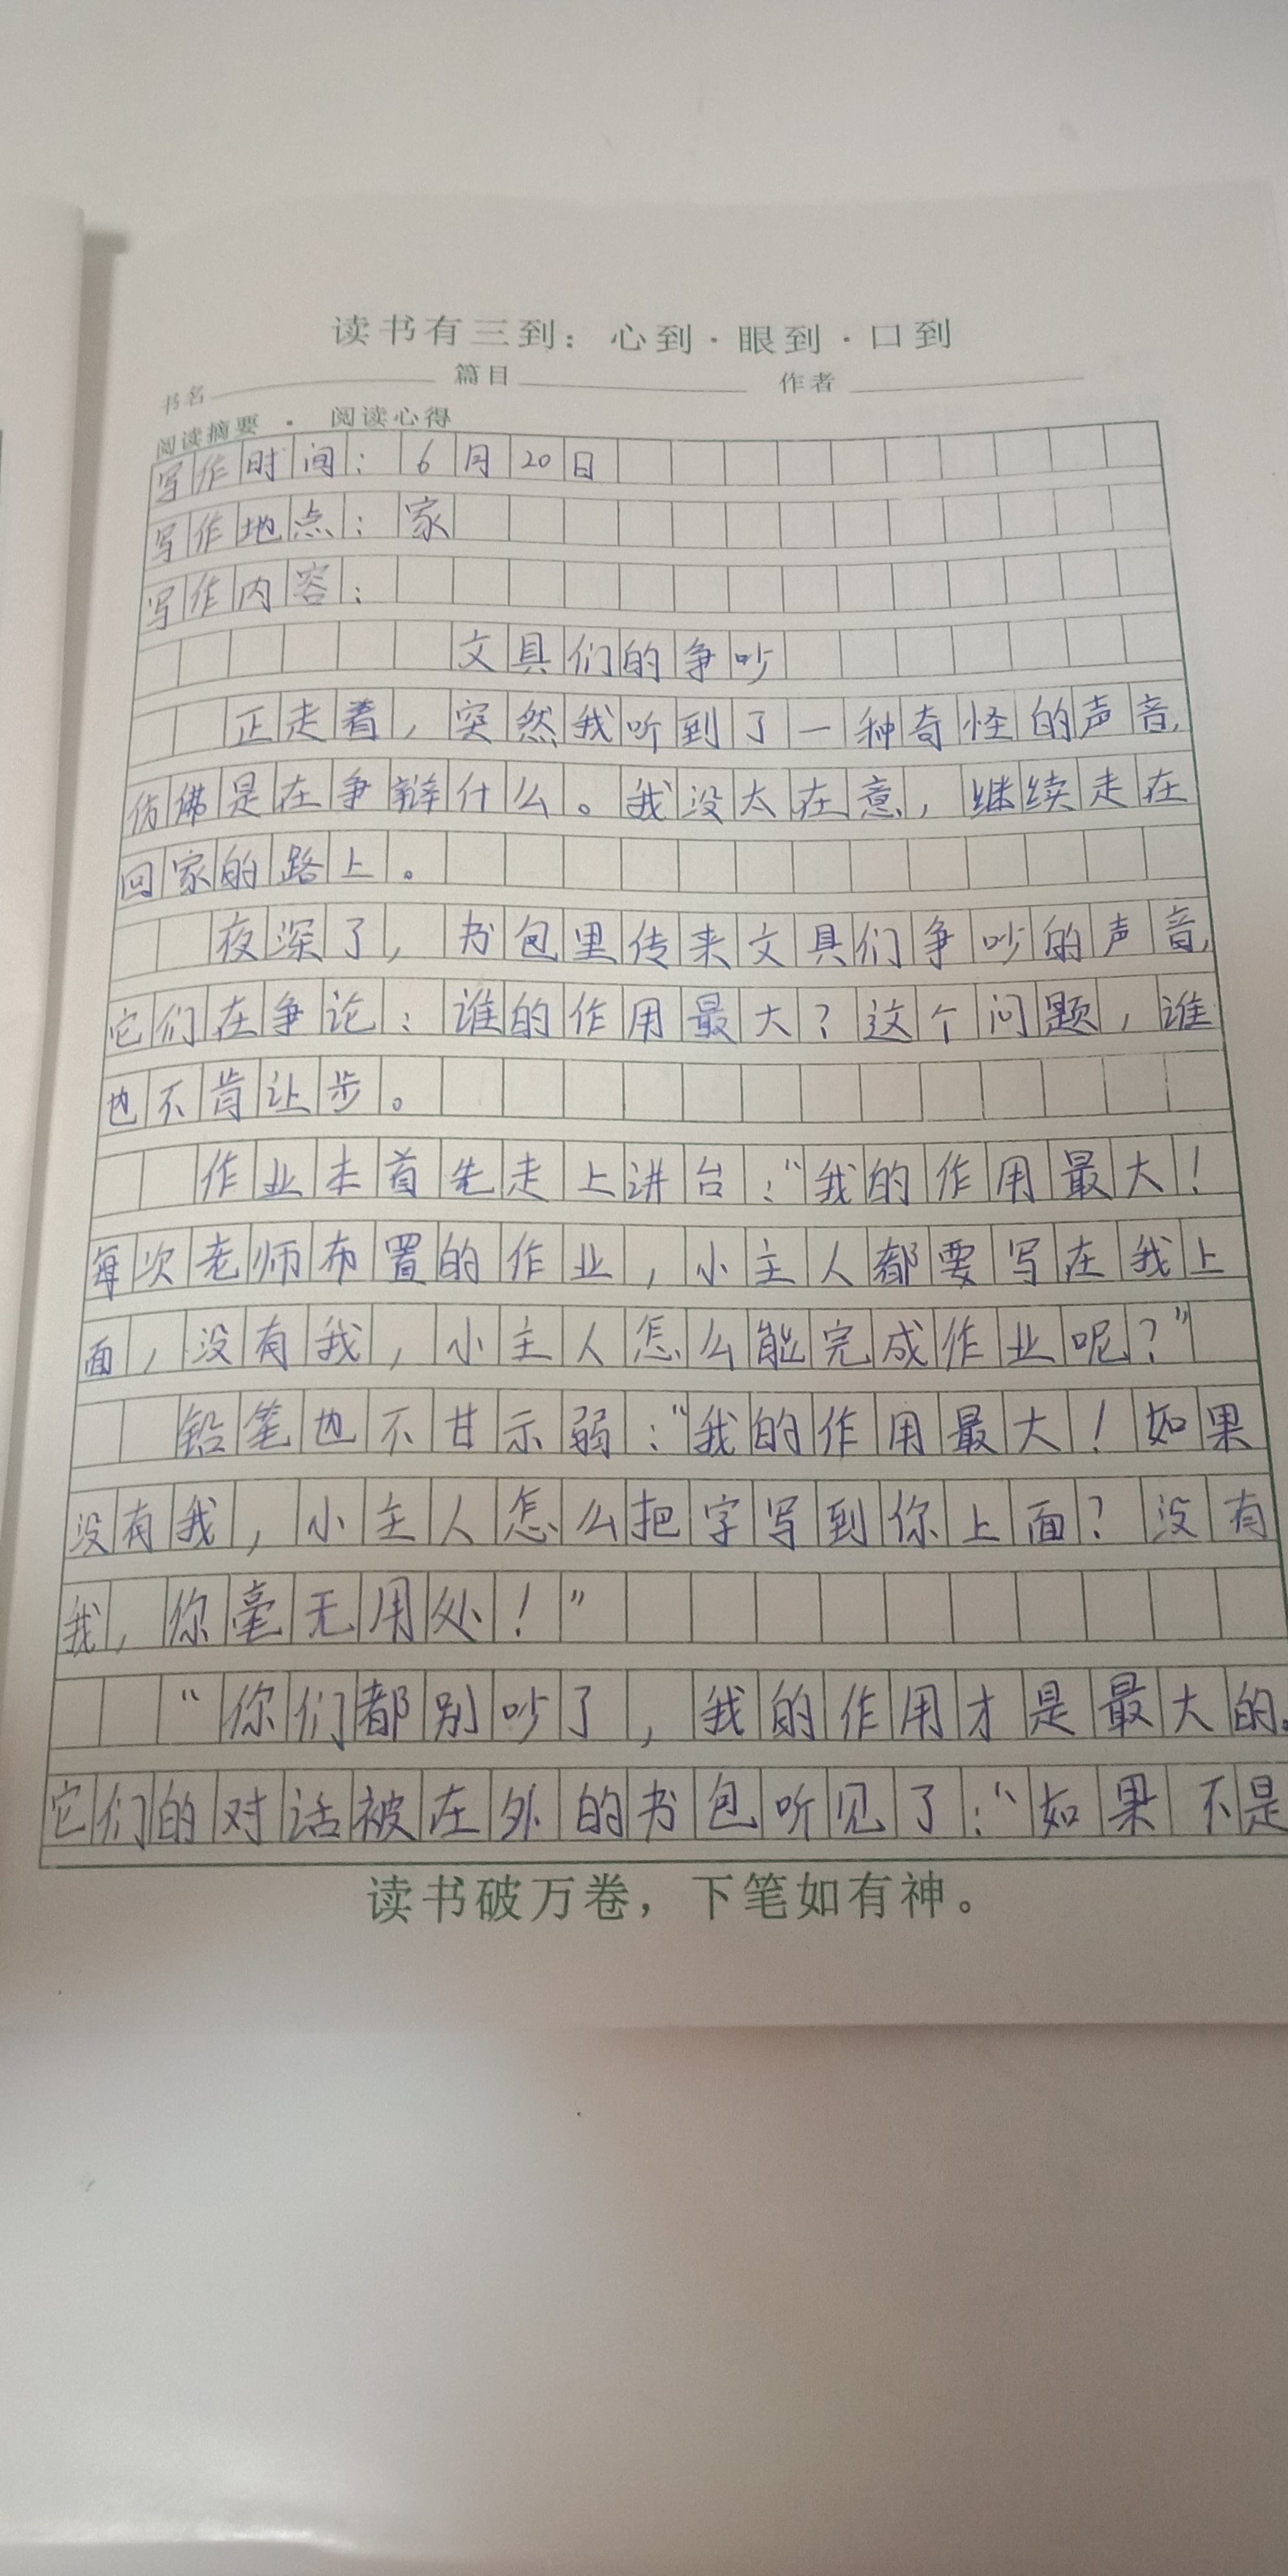 读书有三到：心到·眼到·口到
书名 篇目 作者
阅读摘要 · 阅读心得
写作时间：6月20日
写作地点：家
写作内容：
文具们的争吵
正走着，突然我听到了一种奇怪的声音，
仿佛是在争辩什么。我没太在意，继续走在
回家的路上。
夜深了，书包里传来文具们争吵的声音，
它们在争论：谁的作用最大？这个问题，谁
也不肯让步。
作业本首先走上讲台：“我的作用最大！
每次老师布置的作业，小主人都要写在我上
面，没有我，小主人怎么能完成作业呢？”
铅笔也不甘示弱：“我的作用最大！如果
没有我，小主人怎么把字写到你上面？没有
我，你毫无用处！”
“你们都别吵了，我的作用才是最大的。
它们的对话被在外的书包听见了：“如果不是
读书破万卷，下笔如有神。